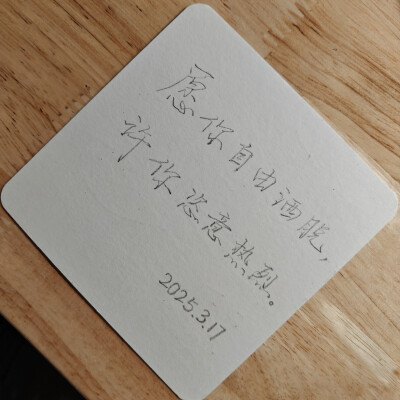 愿你自由洒脱,
许你恣意热烈。
2025.3.17